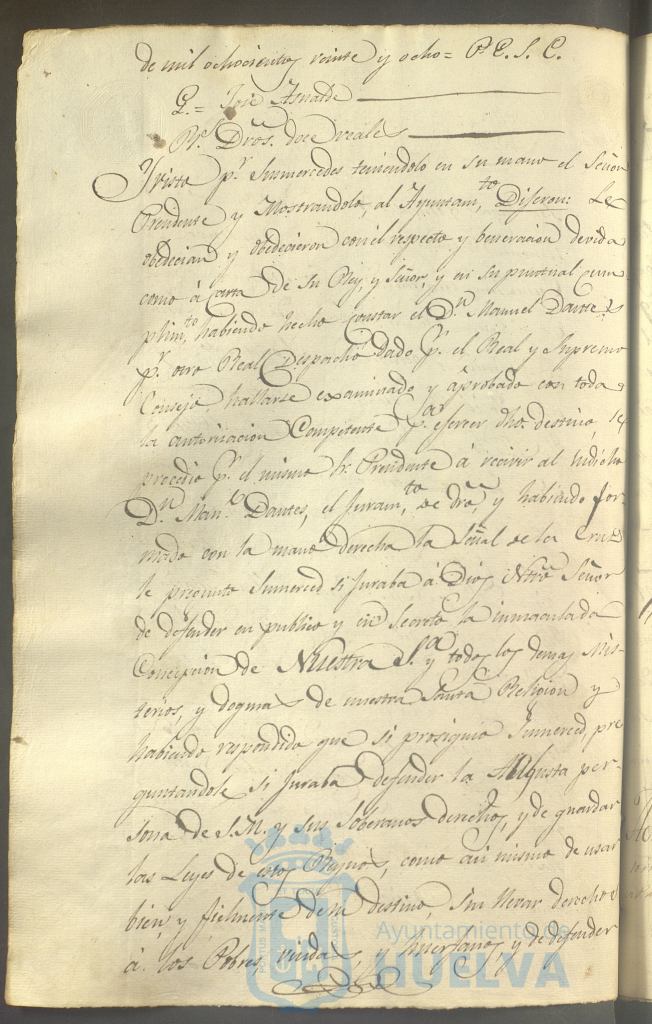 de mil ochocientos veinte y ocho = P. E. S. C.
G. = José Asnalde
Rs. Dros. doce reales
Y visto pr. Sumercedes teniendolo en su mano el Señor
Presidente y Mostrandolo, al Ayuntamto, Digeron: Le
obedecian y obedecieron con el respecto y beneracion devida
como á carta de su Rey, y Señor, y en su puntual cum
plimto habiendo hecho constar el Dn. Manuel Dantes
pr. otro Real Despacho dado pr. el Real y Supremo
Consejo hallarse examinado y aprobado con toda
la autorizacion Competente pa. egercer dho. destino, se
procedio pr. el mismo Sr. Presidente á recivir al
Dn. Manl. Dantes, el Juramto de dro, y habiendo for-
mado con la mano derecha la Señal de la Cruz
le pregunto Sumerced si Juraba á Dios Ntro Señor
de defender en publico y en Secreto la inmaculada
Concepcion de Nuestra Sa. y todos los demas Mis-
terios, y dogmas de nuestra Santa Religion y
habiendo respondido que si prosiguio Sumerced, pre
guntandole si Juraba defender la Augusta per-
sona de S.M. y sus Soberanos derechos, y de guardar
las Leyes de estos Reynos, como asi mismo de usar
bien y fielmente de su destino, sin llevar derechos
á los Pobres, viudas, y huerfanos, y de defender
Ayuntamiento de
HUELVA